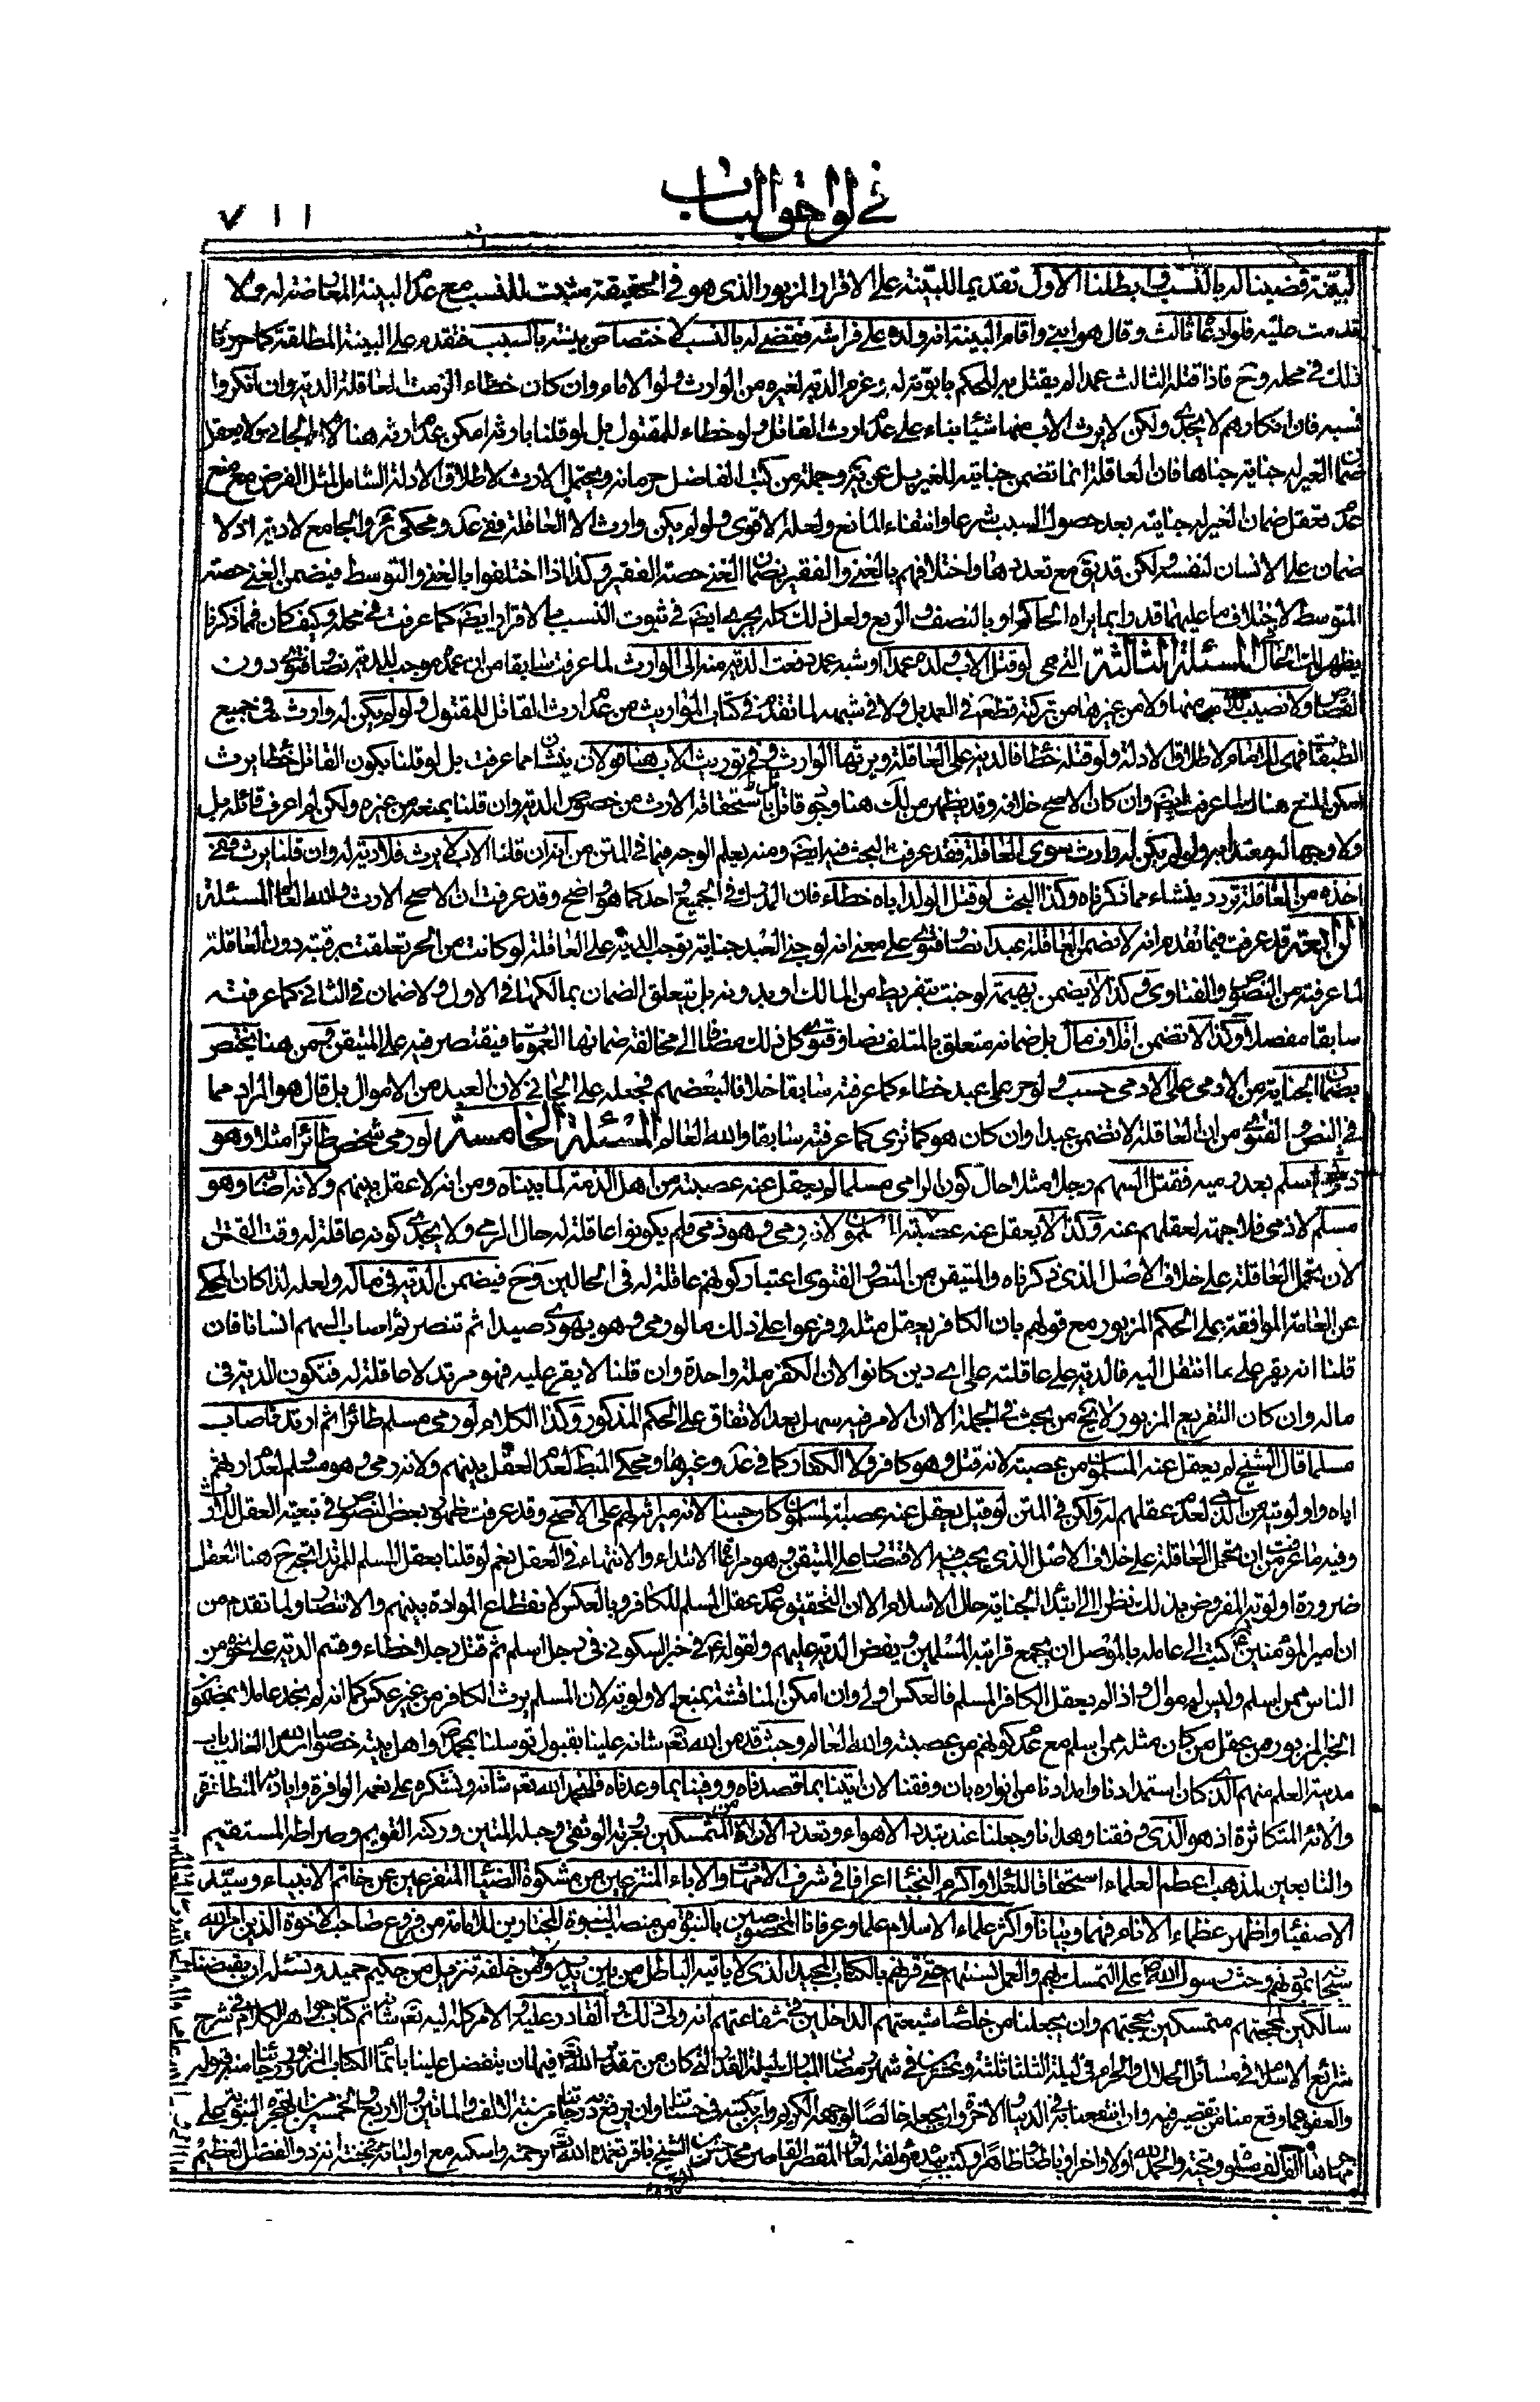 في لواحق الباب
٧١١
البينة قضينا له بالنسب وابطلنا الاول تقديما للبينة على الاقرار المزبور الذى هو في الحقيقة مثبت للنسب مع عدم البينة المعارضة له والا
قدمت عليه فلو ادعاه ثالث وقال هو ابنى واقام البينة انه ولد على فراشه فقضى له بالنسب لاختصاص بينته بالسبب فتقدم على البينة المطلقة كما حررنا
ذلك في محله وح فاذا قتله الثالث عمدا لم يقتل به للحكم بابوته له وغرم الدية لغيره من الوارث ولو الامام وان كان خطاء الزمت العاقلة الدية وان انكروا
نسبه فان انكارهم لا يجدى ولكن لا يرث الاب منها شيئا بناء على عدم ارث القاتل ولو خطاء للمقتول بل لو قلنا بارثه امكن عدم ارثه هنا لانه الجانى ولا يعقل
ضمان الغير له جناية جناها فان العاقلة انما تضمن جنايته للغير بل عن ير وجملة من كتب الفاضل حرمانه ويحتمل الارث لاطلاق الادلة الشامل لمثل الفرض مع منع
عدم تعقل ضمان الغير له جنايته بعد حصول السبب شرعا وانتفاء المانع ولعله الاقوى ولو لم يكن وارث الا العاقلة ففى عد ومحكى ير والجامع لا دية اذ لا
ضمان على الانسان لنفسه ولكن قد يق مع تعددها واختلافهم بالغنى والفقير يضمان الغنى حصة الفقير وكذا اذا اختلفوا بالغنى والتوسط فيضمن الغنى حصة
المتوسط لاختلاف ما عليهما قدرا بما يراه الحاكم او بالنصف والربع ولعل ذلك كله يجرى ايضم في ثبوت النسب بالاقرار ايضم كما عرفت في محله وكيف كان فما ذكرنا
يظهر لك حال المسئلة الثالثة التى هى لو قتل الاب ولده عمدا او شبه عمد دفعت الدية منه الى الوارث لما عرفت سابقا من ان عمده موجب للدية نصا وفتوى دون
القصاص ولا نصيب للاب منها ولا من غيرها من تركته قطعا في العمد بل ولا في شبهه لما تقدم في كتاب المواريث من عدم ارث القاتل للمقتول ولو لم يكن له وارث في جميع
الطبقات فهى للامام لاطلاق الادلة ولو قتله خطا فالدية على العاقلة ويرثها الوارث وفي توريث الاب هنا قولان ينشان مما عرفت بل لو قلنا بكون القاتل خطا يرث
امكن المنع هنا لما عرفت ايضم وان كان الاصح خلافه وقد يظهر من لك هنا وجود قائل باستحقاقه الارث من خصوص الدية وان قلنا بمنعه من غيره ولكن لم اعرف قائله بل
ولا وجها له معتدا به ولو لم يكن له وارث سوى العاقلة فقد عرفت البحث فيه ايضم ومنه يعلم الوجه فيما في المتن من انه ان قلنا الاب لا يرث فلا دية له وان قلنا يرث ففى
اخذه من العاقلة تردد ينشاء مما ذكرناه وكذا البحث لو قتل الولد اباه خطاء فان المدرك في الجميع واحد كما هو واضح وقد عرفت ان الاصح الارث والله العالم المسئلة
الرابعة قد عرفت فيما تقدم انه لا تضمن العاقلة عبدا نصا وفتوى على معنى انه لو جنى العبد جناية توجب الدية على العاقلة لو كانت من الحر تعلقت برقبته دون العاقلة
لما عرفته من النصوص والفتاوى وكذا لا يضمن بهيمة لو جنت بتفريط من المالك او بدونه بل يتعلق الضمان بمالكها في الاول ولا ضمان في الثانى كما عرفته
سابقا مفصلا وكذا لا تضمن اتلاف مال بل ضمانه متعلق بالمتلف نصا وفتوى كل ذلك مضافا الى مخالفة ضمانها العمومات فيقتصر فيه على المتيقن ومن هنا يختص
بضمان الجناية من الادمى على الادمى حسب ولو جرى على عبد خطاء كما عرفته سابقا خلافا لبعضهم فجعله على الجانى لان العبد من الاموال بل قال هو المراد مما
في النص والفتوى من ان العاقلة لا تضمن عبدا وان كان هو كما ترى كما عرفته سابقا والله العالم المسئلة الخامسة لو رمى شخص طائرا مثلا وهو
ذمى ثم اسلم بعد رميه فقتل السهم رجلا مثلا حال كون الرامى مسلما لم يعقل عنه عصبته من اهل الذمة لما بيناه ومن انه لا عقل بينهم ولانه اصابه وهو
مسلم لا ذمى فلا جهة لعقلهم عنه وكذا لا يعقل عنه عصبته المسلمون لانه رمى وهو ذمى فلم يكونوا عاقلة له حال الرمى ولا يجدى كونه عاقلة له وقت القتل
لان تحمل العاقلة على خلاف الاصل الذى ذكرناه والمتيقن من النص والفتوى اعتبار كونهم عاقلة له في الحالين وح فيضمن الدية في ماله ولعله لذا كان المحكى
عن العامة الموافقة على الحكم المزبور مع قولهم بان الكافر يعقل مثله وفرعوا على ذلك ما لو رمى وهو يهودى صيدا ثم تنصر ثم اصاب السهم انسانا فان
قلنا انه يقر على ما انتقل اليه فالدية على عاقلته على اى دين كانوا لان الكفر ملة واحدة وان قلنا لا يقر عليه فهو مرتد لا عاقلة له فتكون الدية في
ماله وان كان التفريع المزبور لا يخ من بحث في الجملة الا ان الامر فيه سهل بعد الاتفاق على الحكم المذكور وكذا الكلام لو رمى مسلم طائرا ثم ارتد فاصاب
مسلما قال الشيخ لم يعقل عنه المسلمون من عصبته لانه قتل وهو كافر ولا الكفار كما في عد وغيرها ومحكى المبسوط لعدم العقل بينهم ولانه رمى وهو مسلم لعدم ارثهم
اياه واولويته من الذمى لعدم عقلهم له ولكن في المتن لو قيل يعقل عنه عصبته المسلمون كان حسنا لانه ميراثه لهم على الاصح وقد عرفت ظهور بعض النصوص في تبعية العقل للارث
وفيه ما عرفت من ان تحمل العاقلة على خلاف الاصل الذى يجب فيه الاقتصار على المتيقن وهو مراعاة الابتداء والانتهاء في العقل نعم لو قلنا بعقل المسلم للمرتد اتجه ح هنا العقل
ضرورة اولوية المفروض بذلك نظرا الى ابتداء الجناية حال الاسلام الا ان التحقيق عدم عقل المسلم للكافر وبالعكس لانقطاع الموادة بينهم والانتصار ولما تقدم من
ان امير المؤمنين ع كتب الى عامله بالموصل ان يجمع قرابته المسلمين ويفض الدية عليهم ولقوله ع في خبر السكونى في رجل اسلم ثم قتل رجلا خطاء وقسم الدية على نحوه من
الناس ممن اسلم وليس له موال واذا لم يعقل الكافر المسلم فالعكس اولى وان امكن المناقشة بمنع الاولوية لان المسلم يرث الكافر من غير عكس كما انه لم نجد عاملا بمضمون
الخبر المزبور من عقل من كان مثله ممن اسلم مع عدم كونهم من عصبته والله العالم وحيث قد من الله تعم شانه علينا بقبول توسلنا بمحمد ص واهل بيته خصوصا اسد الله الغالب باب
مدينة العلم منهم الذى كان استمدادنا وامدادنا من انواره بان وفقنا لان اتينا بما قصدناه ووفينا بما وعدناه فلنحمد الله تعم شانه ونشكره على نعمه الوافرة واياديه المتظافرة
والائه المتكاثرة اذ هو الذى وفقنا وهدانا وجعلنا عند تبدد الاهواء وتعدد الاراء من المتمسكين بعروته الوثقى وحبله المتين وركنه القويم وصراطه المستقيم
والتابعين لمذهب اعظم العلماء استحقاقا للعلا واكرم النجباء اعراقا في شرف الامهات والاباء المنتزعين من مشكوة الضياء المتفرعين عن خاتم الانبياء وسيد
الاصفياء واظهر عظماء الانام فهما وبيانا واكثر علماء الاسلام علما وعرفانا المخصوصين بالنبو من منصب النبوة المختارين للامامة من فروع صاحب الاخوة الذين امر الله
سبحانه بمودتهم وحث رسول الله ص على التمسك بهم والعمل بسننهم حتى قرنهم بالكتاب المجيد الذى لا ياتيه الباطل من بين يديه ولا من خلفه تنزيل من حكيم حميد ونسئله ان يقبضنا
سالكين لمحجتهم متمسكين بحجتهم وان يجعلنا من خلصاء شيعتهم الداخلين في شفاعتهم انه ولى ذلك والقادر عليه والامر كله اليه تعم شانه تم كتاب جواهر الكلام في شرح
شرائع الاسلام في مسائل الحلال والحرام في ليلة الثلثا ثلثة وعشرين في شهر رمضان المبارك ليلة القدر التى كان من تقدير الله تعم فيها ان يتفضل علينا باتمام الكتاب المزبور راجيا منه قبوله
والعفو عما وقع منا من تقصير فيه وان ينفعنا به في الدنيا والاخرة وان يجعله خالصا لوجهه الكريم وان يكتبه في حسناتنا وان يرفع درجاتنا من سنة الالف والماتين والاربع والخمسين من الهجرة النبوية على
مهاجرها الف الف صلوة وتحية والحمد لله اولا واخرا وباطنا وظاهرا وكتب بيده مؤلفه العاثر المقصر القاصر محمد حسن بن الشيخ باقر تغمده الله تعم برحمته واسكنه مع اوليائه بجنته انه ذو الفضل العظيم